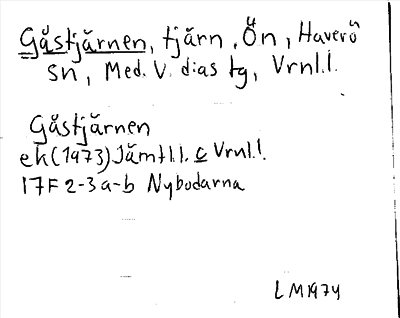 Gåstjärnen, tjärn, Ön, Haverö
sn, Med. V. dias tg, Vrnl.l.
Gåstjärnen
ek (1973) Jämtl.l. c Vrnl.l.
17F 2-3 a-b Nybodarna
LM 1974